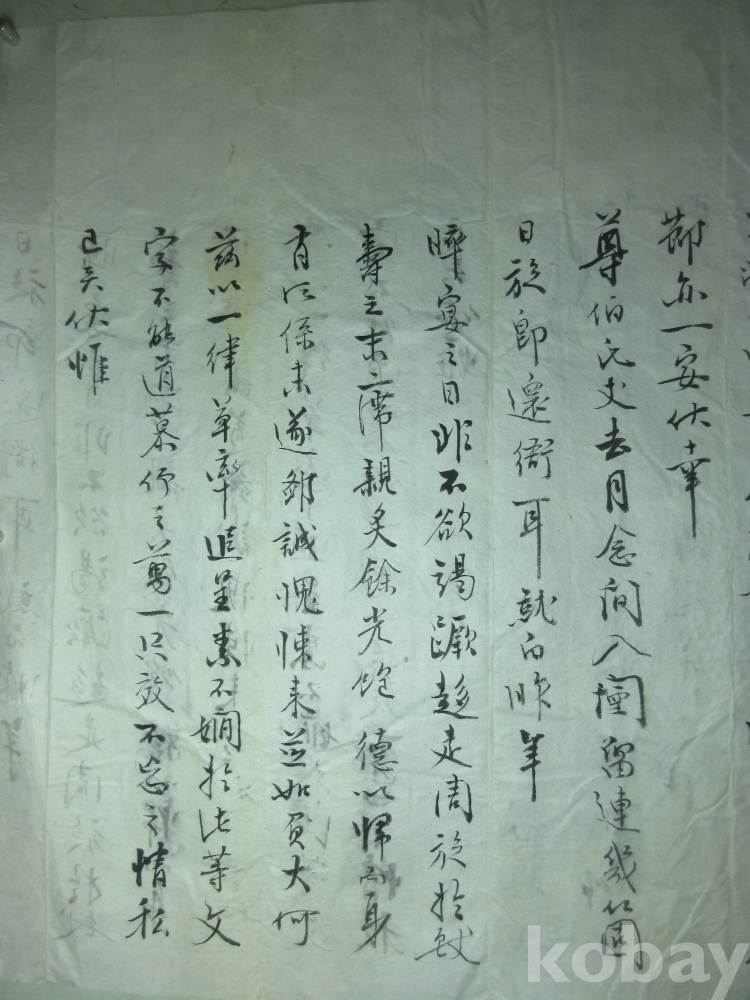 節亦一安伏幸
尊伯氏丈去月念間入闉留連幾箇
日旋卽還衙耳就白昨年
晬宴之日非不欲竭蹶趍走周旋於獻
壽之末席親炙餘光飽德以歸而身
有所係未遂誠愧悚未並如負大何
玆以一律草率追呈素不嫺於此等文
字不能道慕仰之萬一只效不忘之情私
已矣伏惟
kobay